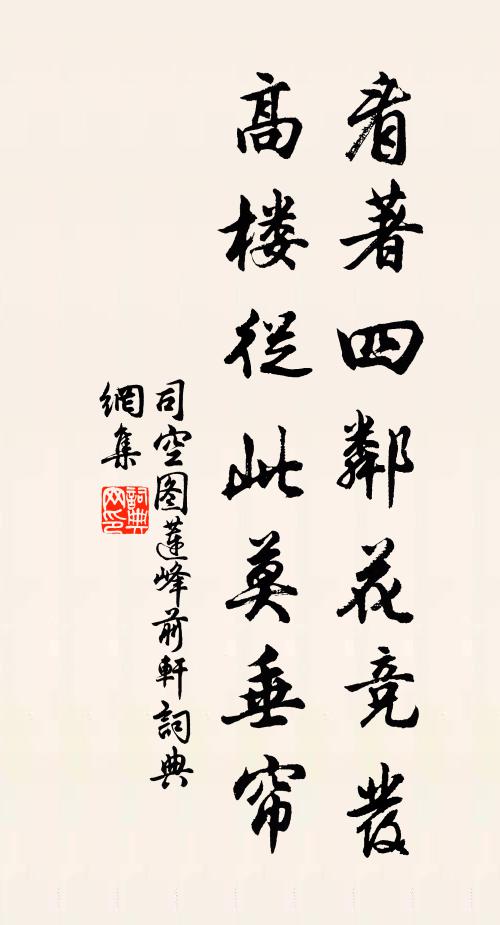 看著四鄰花竞發
高楼從此莫垂帘
司空图蓮峰前軒詞典
網集
詞典
网印